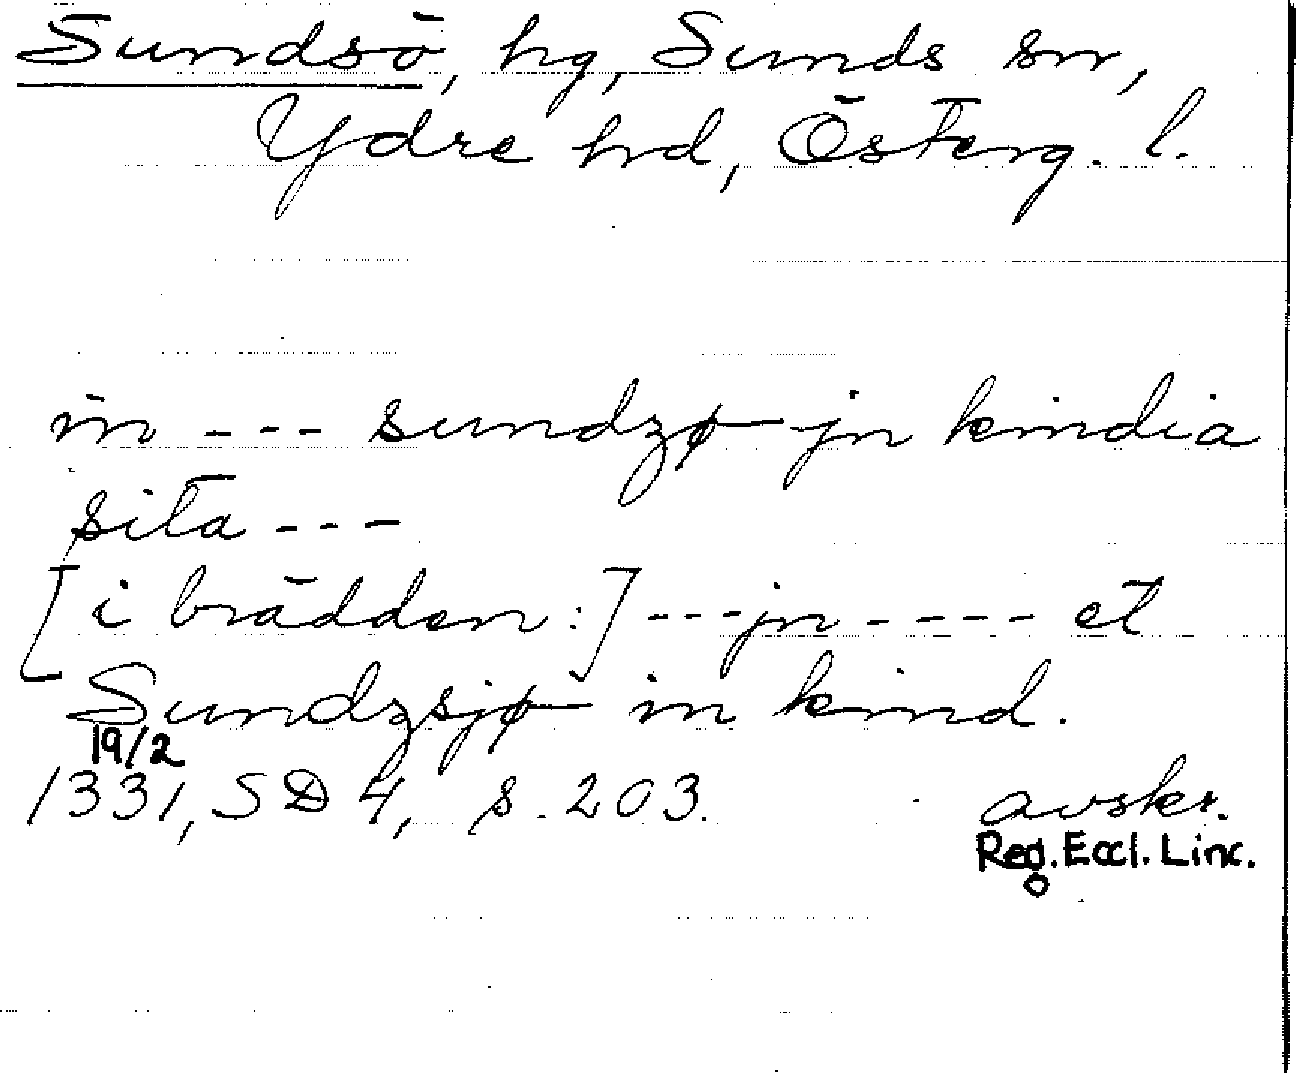 Sundsö, hg, Sunds sn,
Ydre hd, Österg. l.
in --- sundzø jn kindia
sita ---
[i brädden:] --- jn ---- et
Sundzsjø in kind.
19/2
1331, SD 4, s. 203. avskr.
Reg. Eccl. Linc.